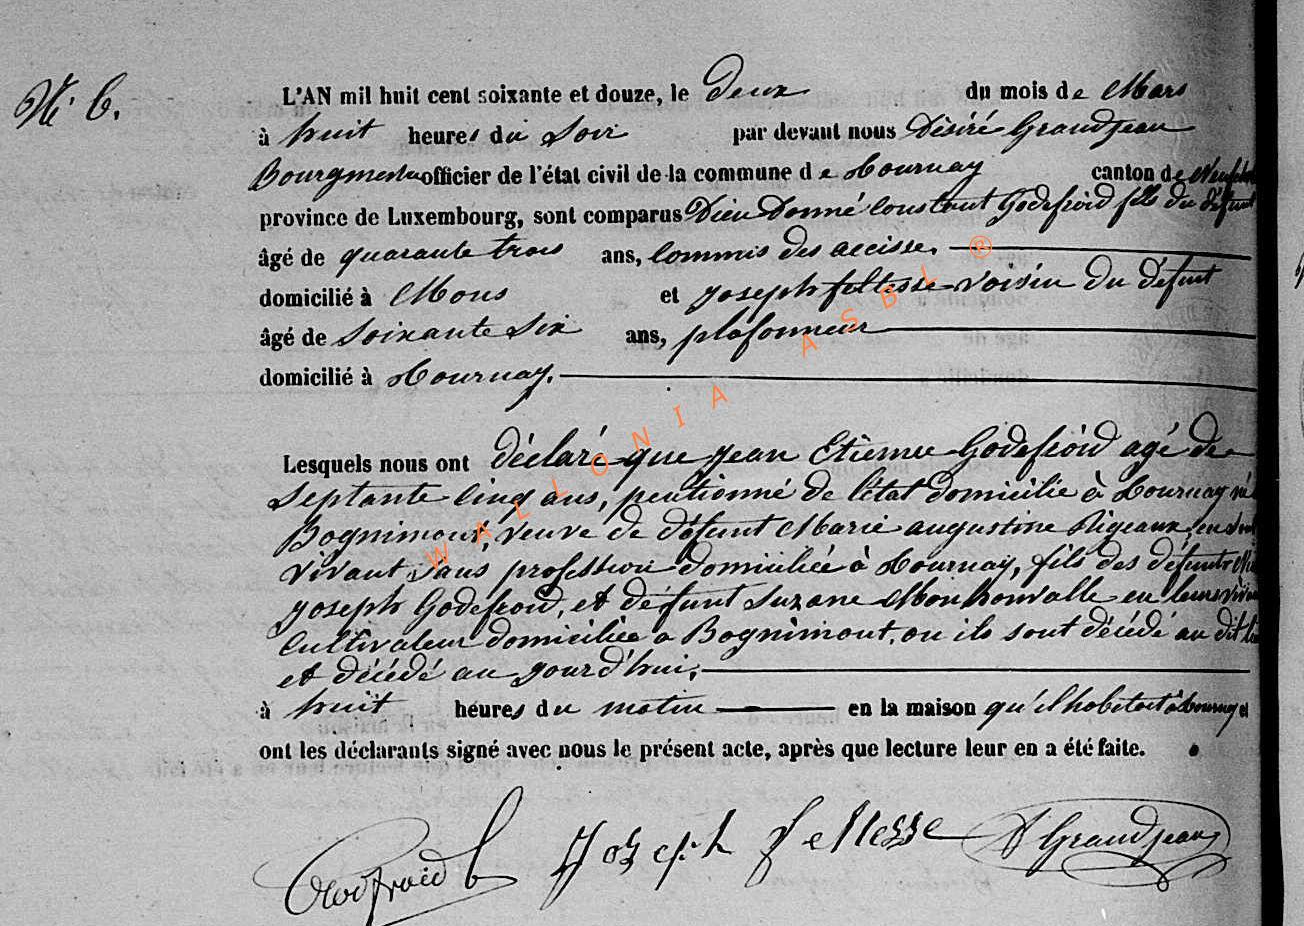 N° 6.
L'AN mil huit cent soixante et douze, le deux du mois de Mars
à huit heures du Soir par devant nous Désiré Grandjean
Bourgmestre officier de l'état civil de la commune de Tournay canton de
province de Luxembourg, sont comparus Dieu Donné Constant Godefroid fils du défunt
âgé de quarante trois ans, Commis des accisse,
domicilié à Mons et joseph feltesse voisin du défunt
âgé de Soixante Six ans, plafonneur
domicilié à Tournay.
Lesquels nous ont déclaré que jean Etienne Godefroid agé de
Septante Cinq ans, pentionné de l'état domicilie à Tournay né
Bognimont, veuve de défunt Marie augustine Rigeaux, en
vivant Sans profession domiciliée à Tournay, fils des défunts
joseph Godefroid, et défunt Suzane Monhonvalle en leurs
Cultivateur domiciliée a Bognimont, ou ils sont décédé au dit
et décédé au jourd'hui,
à huit heures du matin en la maison qu'il habitait à Tournay et
ont les déclarants signé avec nous le présent acte, après que lecture leur en a été faite.
Godfroid C Joseph feltesse D Grandjean
WALLONIA ASBL ®